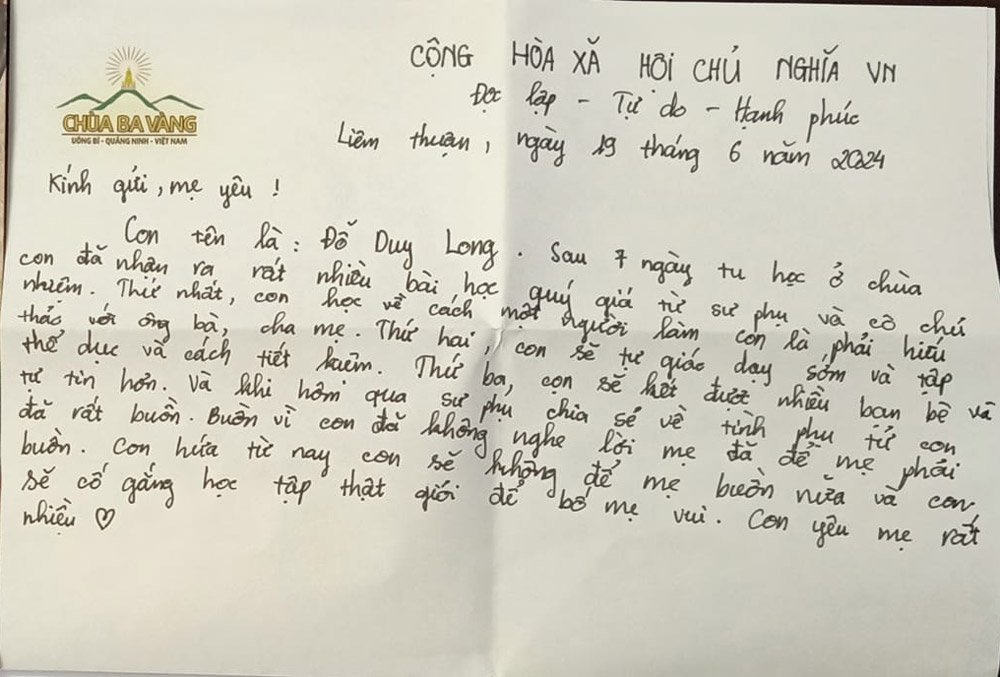 CHÙA BA VÀNG
UÔNG BÍ - QUẢNG NINH - VIỆT NAM
CỘNG HÒA XÃ HỘI CHỦ NGHĨA VN
Độc lập - Tự do - Hạnh phúc
Liêm thuận, ngày 19 tháng 6 năm 2024
Kính gửi, mẹ yêu !
Con tên là : Đỗ Duy Long. Sau 7 ngày tu học ở chùa
con đã nhận ra rất nhiều bài học quý giá từ sư phụ và cô chú
nhiệm. Thứ nhất, con học về cách một người làm con là phải hiếu
thảo với ông bà, cha mẹ. Thứ hai, con sẽ tự giác dạy sớm và tập
thể dục và cách tiết kiệm. Thứ ba, con sẽ kết được nhiều bạn bè và
tự tin hơn. Và khi hôm qua sư phụ chia sẻ về tình phụ tử con
đã rất buồn. Buồn vì con đã không nghe lời mẹ đã để mẹ phải
buồn. Con hứa từ nay con sẽ không để mẹ buồn nữa và con
sẽ cố gắng học tập thật giỏi để bố mẹ vui. Con yêu mẹ rất
nhiều ♡